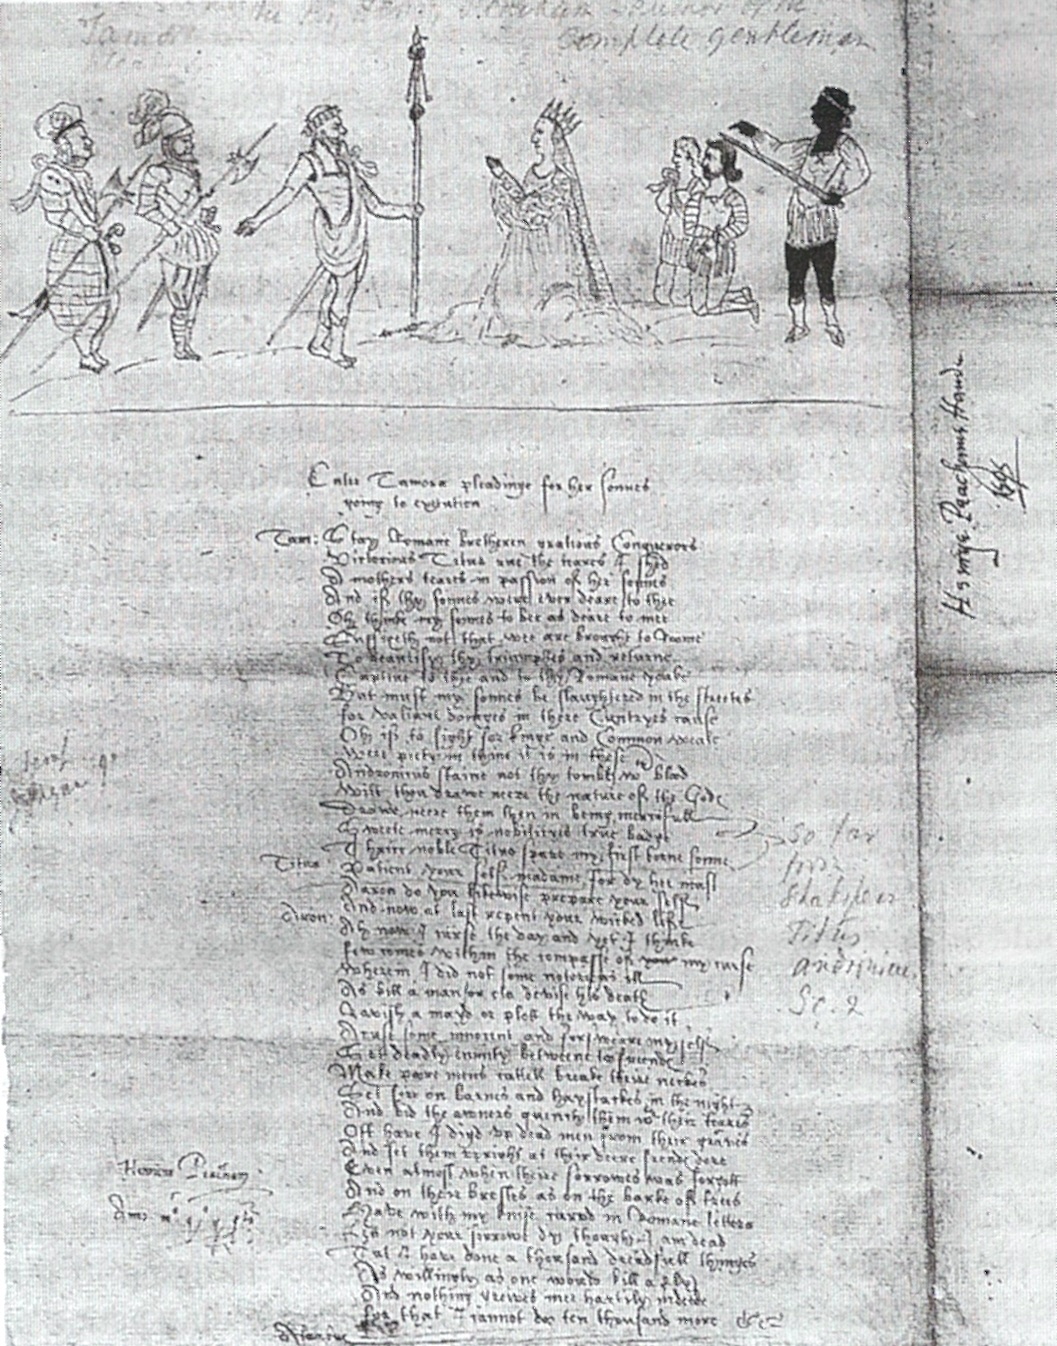 complete gentleman
Enter Tamora pleadinge for her sonnes
going to execution
Tam: Stay Romane bretheren gratious Conquerors
Victorious Titus rue the teares I shed
A mothers teares in passion of her sonnes
And if thy sonnes were ever deare to thee
Oh thinke my sonnes to bee as deare to mee
Suffizeth not that wee are brought to Roome
To beautify thy triumphes and returne
Captive to thee and to thy Romane yoake
But must my sonnes be slaughtered in the streetes
for valiant doynges in there Cuntryes cause
Oh if to fight for kinge and Common weale
Were piety in thine it is in these
Andronicus staine not thy tombe wth blood
Wilt thou drawe neere the nature of the Godes
Drawe neere them then in being mercifull
Sweete mercy is nobilityes true badge
Thrice noble Titus spare my first borne sonne
Titus: Patient your self madame for dy hee must
Aaron do you likewise prepare your self
And now at last repent your wicked life
Aron: Ah now I curse the day and yet I thinke
few comes within the compasse of my curse
Wherein I did not some notorious ill
As kill a man or els devise his death
Ravish a mayd or plott the way to do it
Acuse some innocent and forsweare myself
Set deadly enmity betweene too freendes
Make poore mens cattell breake theire neckes
Set fire on barnes and haystackes in the night
And bid the owners quench them wth their teares
Oft have I digd vp dead men from their graves
And set them vpright at their deere frendes dore
Even almost when theire sorrowes was forgott
And on their brestes as on the barke of trees
Have with my knife carvd in Romane letters
Lett not your sorrowe dy though I am dead
Tut I have done a thousand dreadfull thinges
As willingly as one would kill a fly
And nothing greives mee hartily indeede
for that I cannot doo ten thousand more &c
so far
from
Shakspear
Titus
Andronicus
Sc. 2
Henrye Peachams Hand
1595